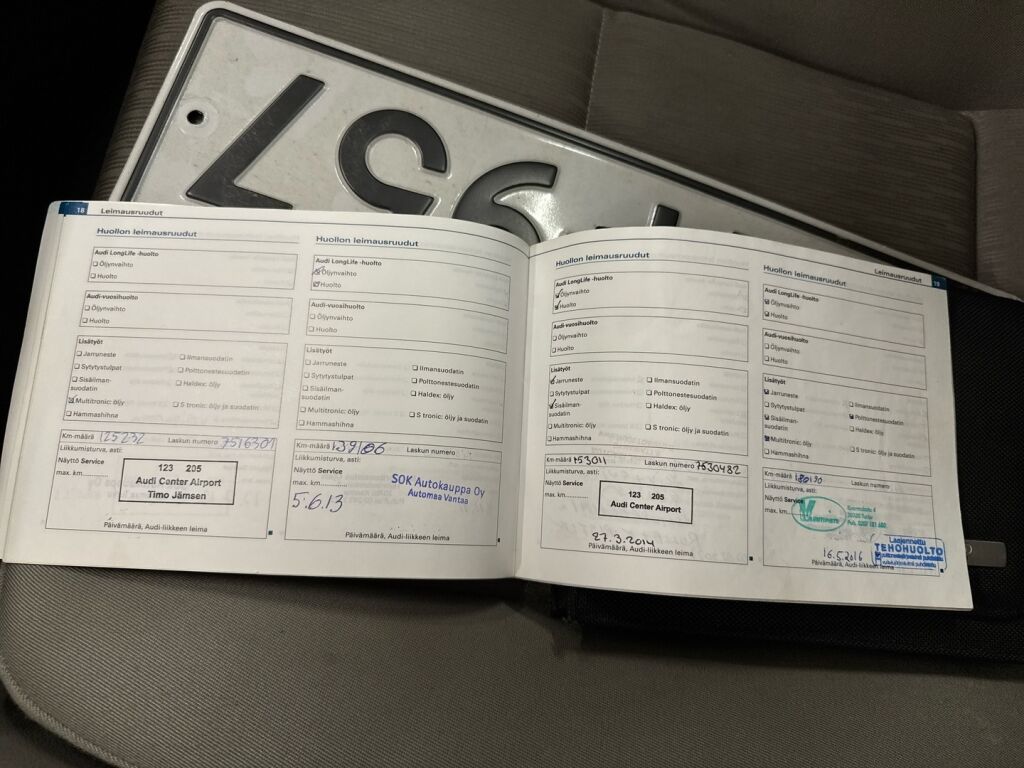 957
18 Leimausruudut
Huollon leimausruudut
Audi LongLife -huolto
Öljynvaihto
Huolto
Audi-vuosihuolto
Öljynvaihto
Huolto
Lisätyöt
Jarruneste
Ilmansuodatin
Sytytystulpat
Polttonestesuodatin
Sisäilman-
suodatin
Haldex: öljy
Multitronic: öljy
S tronic: öljy ja suodatin
Hammashihna
Km-määrä 125232 Laskun numero 7516301
Liikkumisturva, asti:
Näyttö Service
max. km
123 205
Audi Center Airport
Timo Jämsen
Päivämäärä, Audi-liikkeen leima
Huollon leimausruudut
Audi LongLife -huolto
Öljynvaihto
Huolto
Audi-vuosihuolto
Öljynvaihto
Huolto
Lisätyöt
Jarruneste
Ilmansuodatin
Sytytystulpat
Polttonestesuodatin
Sisäilman-
suodatin
Haldex: öljy
Multitronic: öljy
S tronic: öljy ja suodatin
Hammashihna
Km-määrä Laskun numero
Liikkumisturva, asti:
Näyttö Service
max. km
5.6.13
SOK Autokauppa Oy
Automaa Vantaa
Päivämäärä, Audi-liikkeen leima
Huollon leimausruudut
Audi LongLife -huolto
Öljynvaihto
Huolto
Audi-vuosihuolto
Öljynvaihto
Huolto
Lisätyöt
Jarruneste
Ilmansuodatin
Sytytystulpat
Polttonestesuodatin
Sisäilman-
suodatin
Haldex: öljy
Multitronic: öljy
S tronic: öljy ja suodatin
Hammashihna
Km-määrä 153011 Laskun numero 7530482
Liikkumisturva, asti:
Näyttö Service
max. km
123 205
Audi Center Airport
27.3.2014
Päivämäärä, Audi-liikkeen leima
Leimausruudut 19
Huollon leimausruudut
Audi LongLife -huolto
Öljynvaihto
Huolto
Audi-vuosihuolto
Öljynvaihto
Huolto
Lisätyöt
Jarruneste
Ilmansuodatin
Sytytystulpat
Polttonestesuodatin
Sisäilman-
suodatin
Haldex: öljy
Multitronic: öljy
S tronic: öljy ja suodatin
Hammashihna
Km-määrä 180130 Laskun numero
Liikkumisturva, asti:
Näyttö Service
max. km
16.5.2016
Laajennettu
TEHOHUOLTO
Päivämäärä, Audi-liikkeen leima